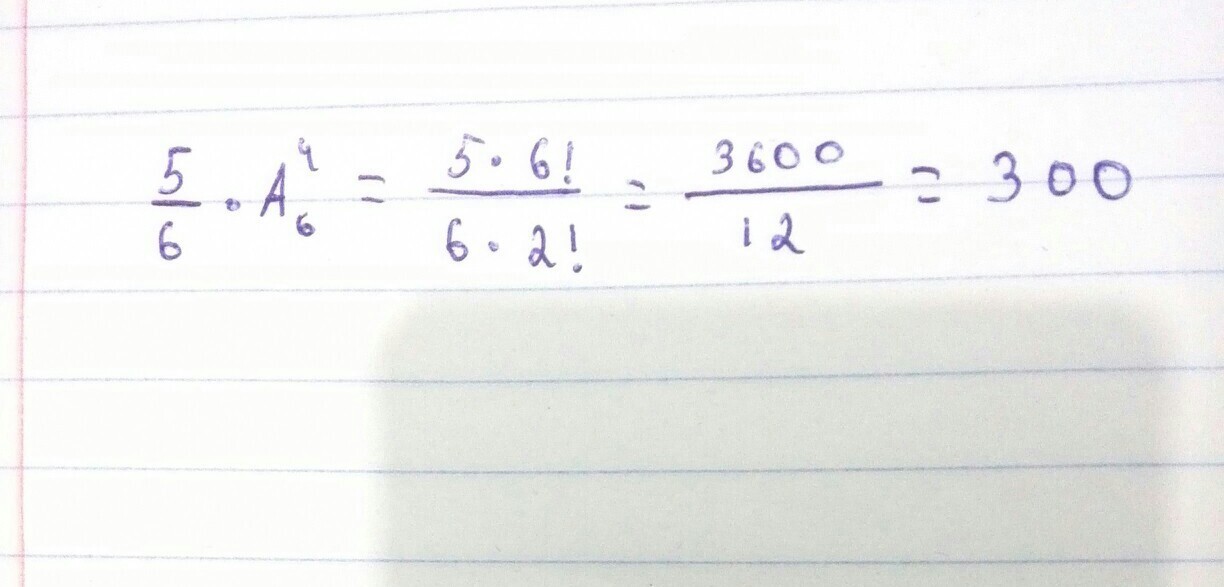 5/6 · A₆⁴ = 5 · 6! / 6 · 2! = 3600 / 12 = 300